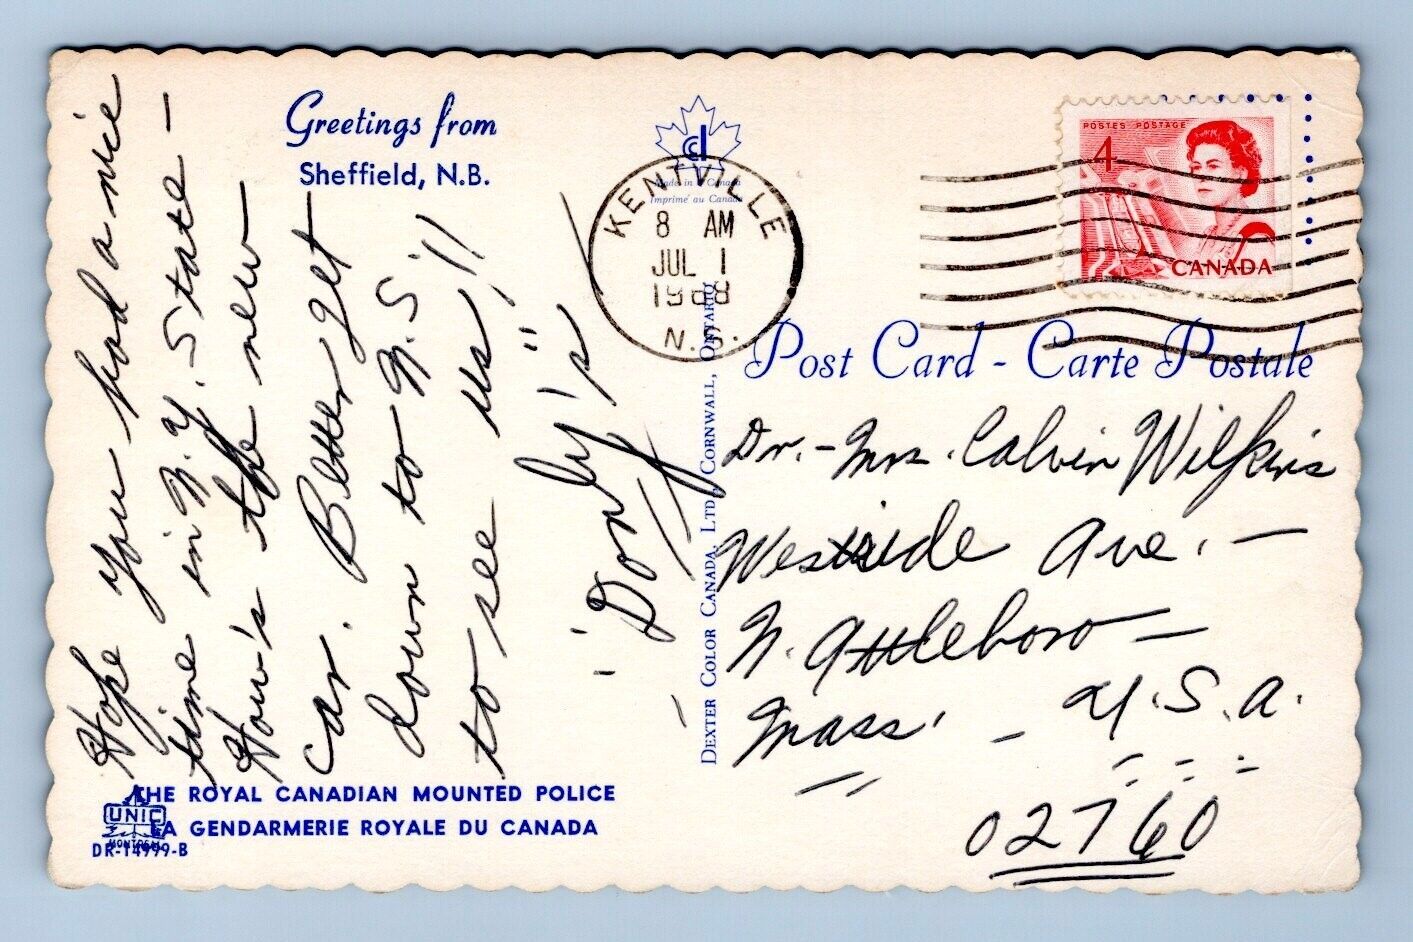 Greetings from
Sheffield, N.B.
Hope you had a nice
time in N.Y. State -
How's the new
car. Better get
down to N.S.
to see us!!
"Don ly's"
THE ROYAL CANADIAN MOUNTED POLICE
LA GENDARMERIE ROYALE DU CANADA
UNIC
MONTREAL
DR-14999-B
Made in Canada
Imprimé au Canada
KENTVILLE
8 AM
JUL 1
1968
N.S.
DEXTER COLOR CANADA, LTD., CORNWALL, ONTARIO
POSTES POSTAGE
4
CANADA
Post Card - Carte Postale
Dr. - Mrs. Calvin Wilkins
Westside Ave. -
N. Attleboro -
Mass. - U.S.A.
02760